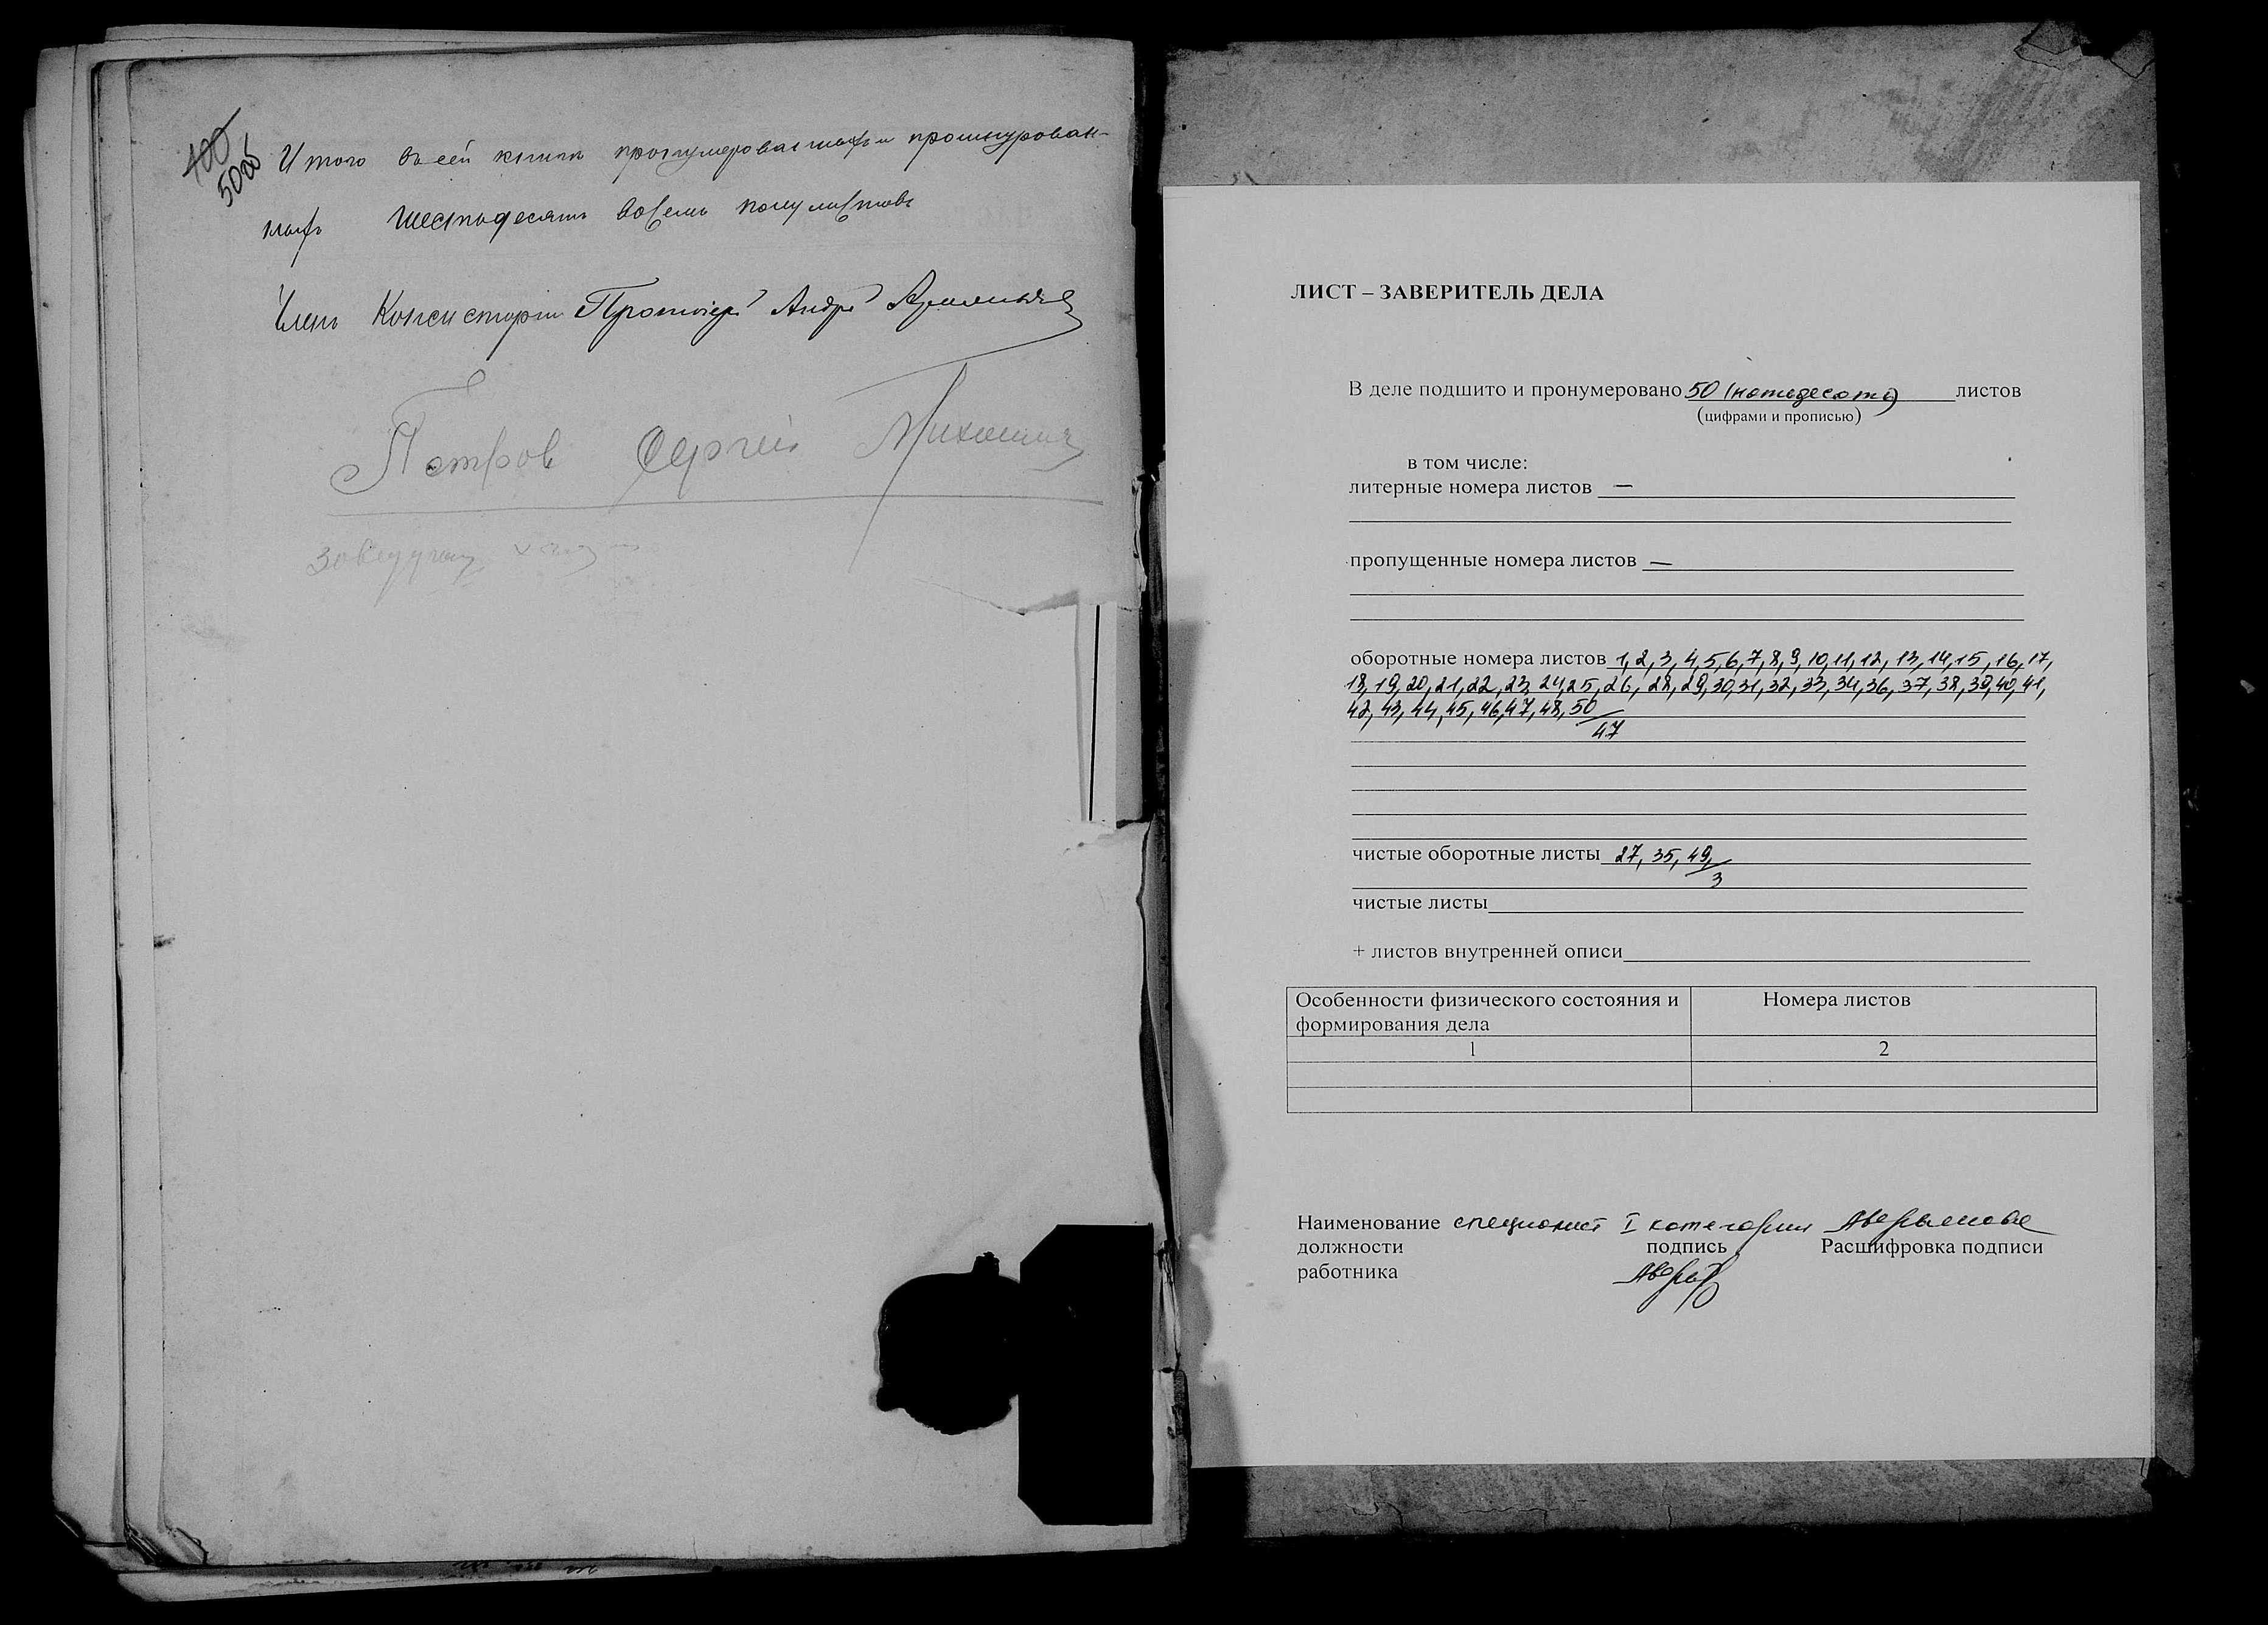 100
50об
Итого въ сей книгѣ пронумерованныхъ и прошнурован-
ныхъ шестьдесятъ восемь полулистовъ
Членъ Консисторіи Протоіер Андре
Петров Сергей
ЛИСТ – ЗАВЕРИТЕЛЬ ДЕЛА
В деле подшито и пронумеровано 50 (пятьдесят) листов
(цифрами и прописью)
в том числе:
литерные номера листов —
пропущенные номера листов —
оборотные номера листов 1, 2, 3, 4, 5, 6, 7, 8, 9, 10, 11, 12, 13, 14, 15, 16, 17,
18, 19, 20, 21, 22, 23, 24, 25, 26, 28, 29, 30, 31, 32, 33, 34, 36, 37, 38, 39, 40, 41,
42, 43, 44, 45, 46, 47, 48, 50
47
чистые оборотные листы 27, 35, 49,
3
чистые листы
+ листов внутренней описи
Особенности физического состояния и Номера листов
формирования дела
1 2
Наименование специалист I категории Аверьянова
должности подпись Расшифровка подписи
работника